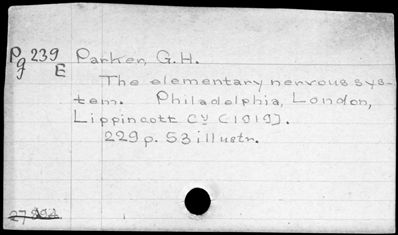 Pg 239 Parker, G.H.
E
The elementary nervous sys-
tem. Philadelphia, London,
Lippincott Cy [1919].
229 p. 53 illustr.